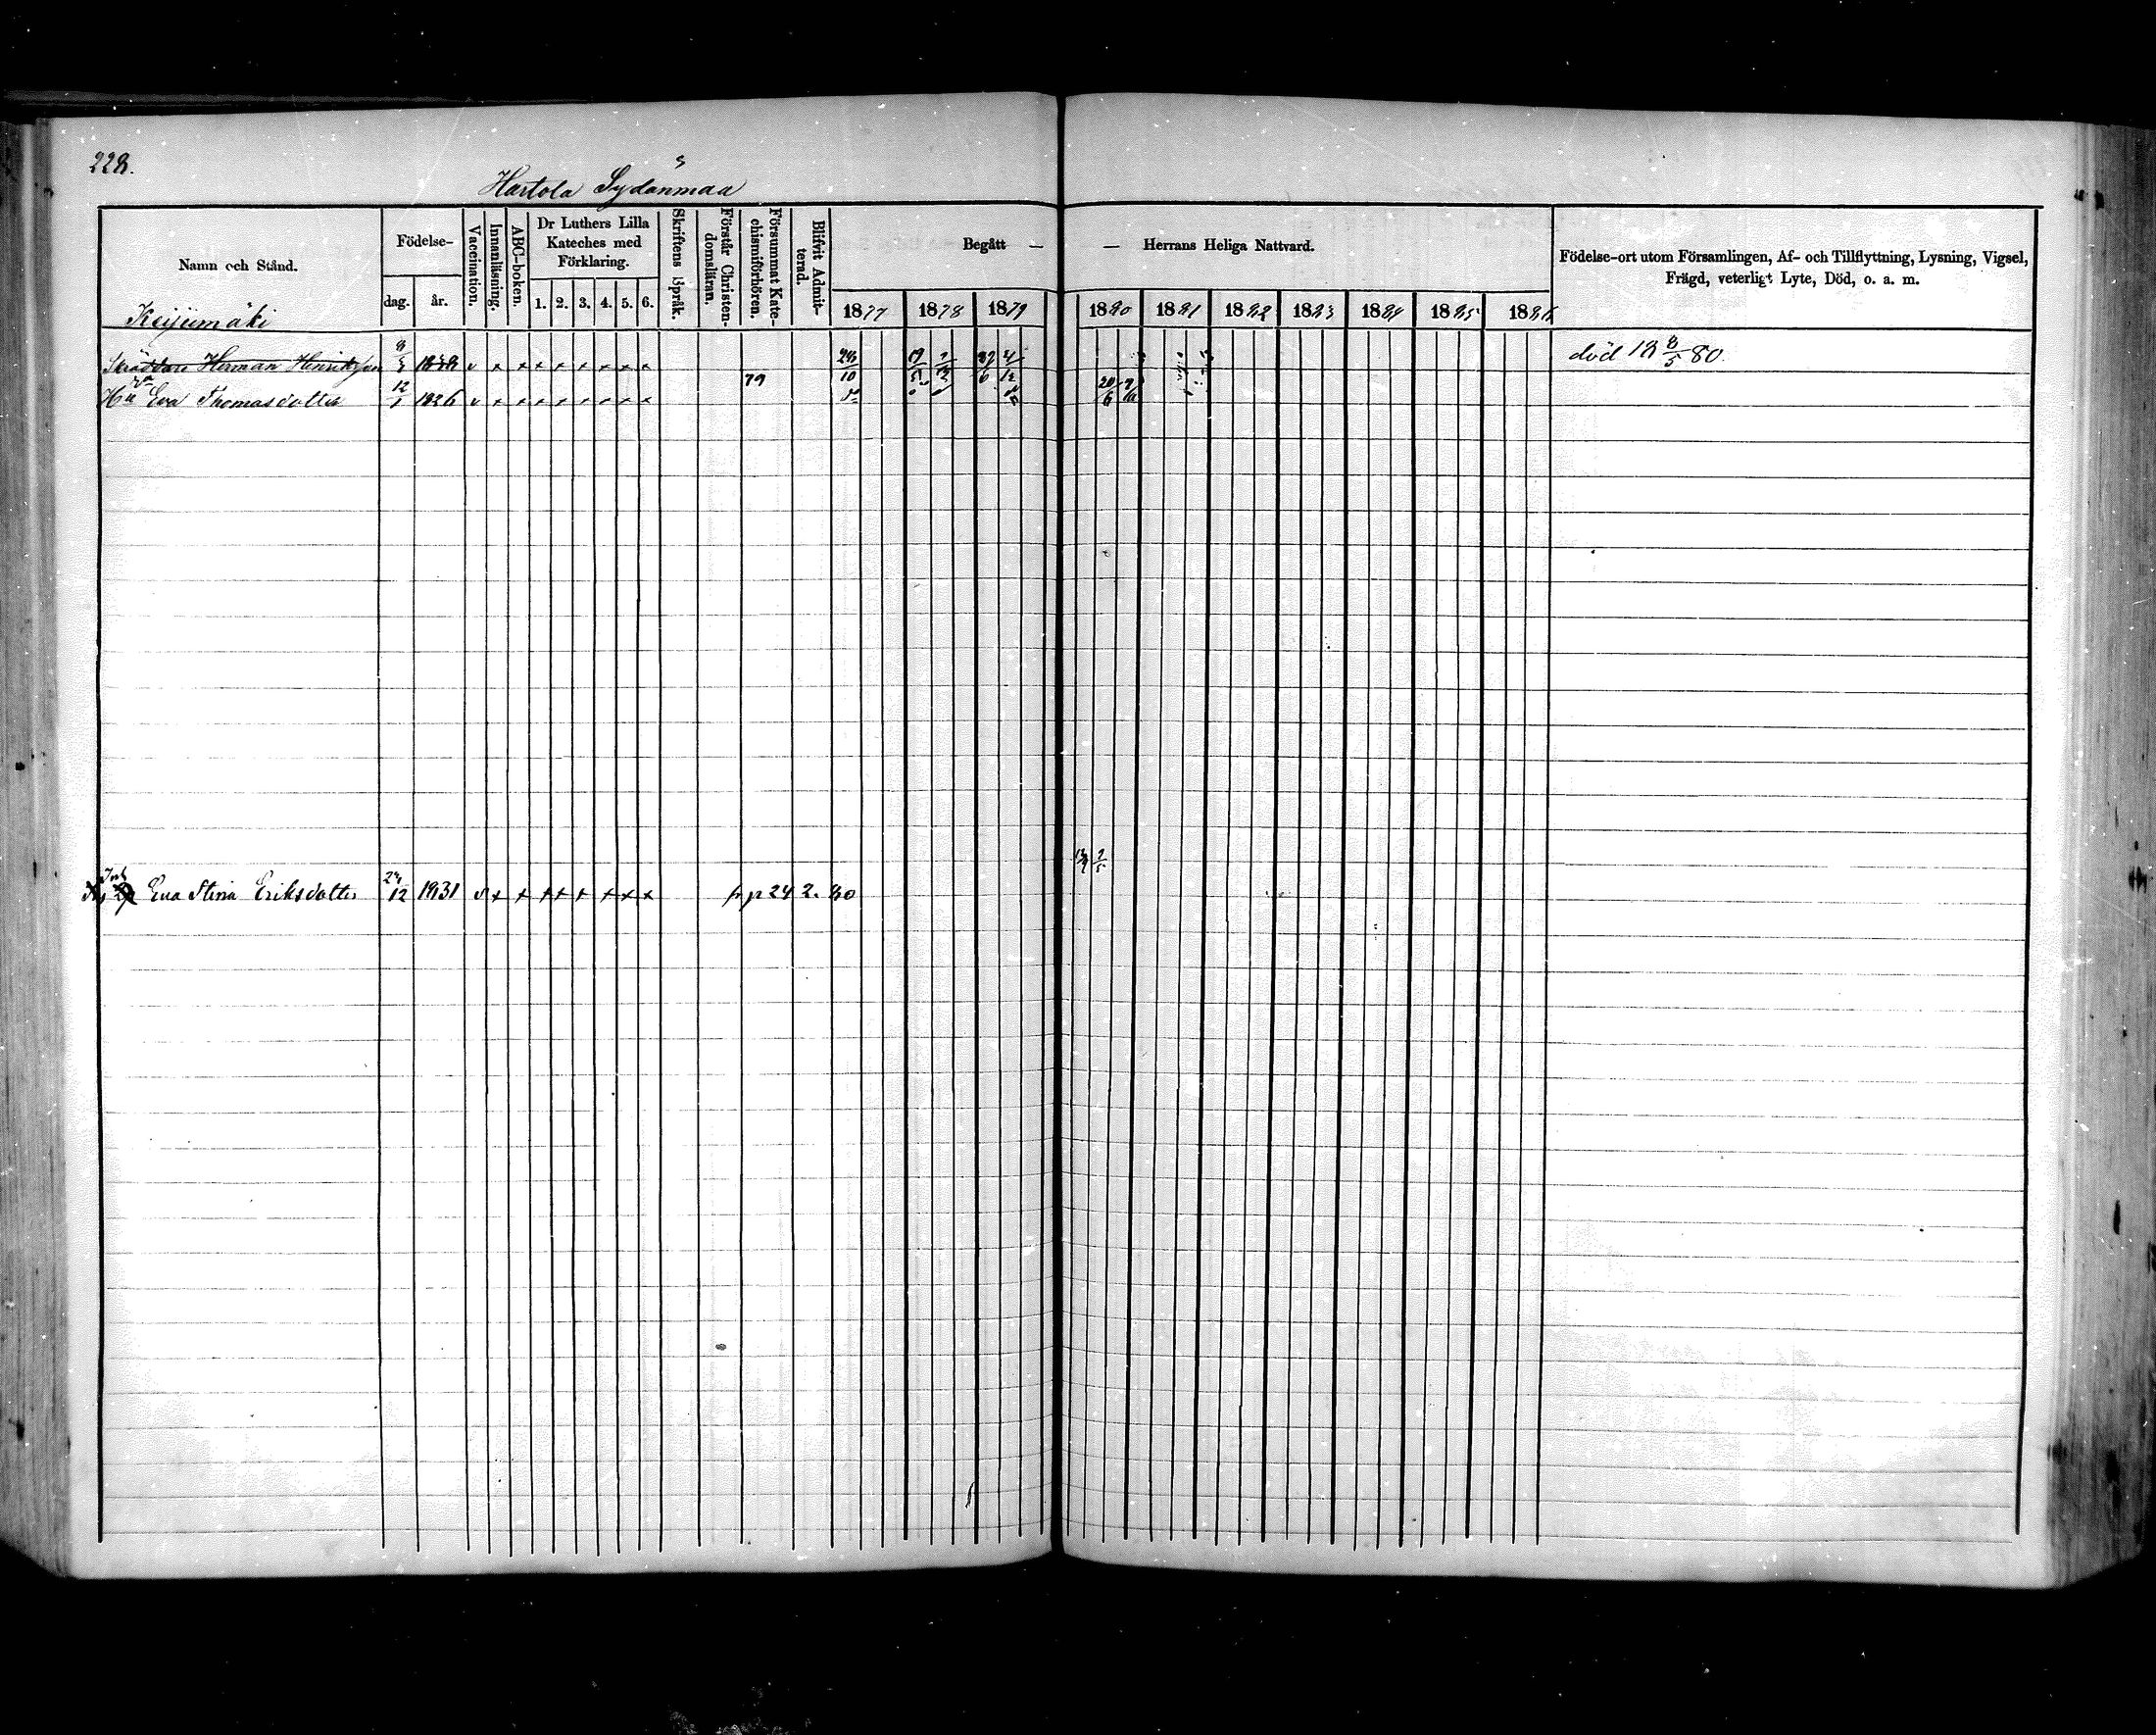 228.
Hartola Sydänmaa
Namn och Stånd.
Födelse-
dag. år.
Vaccination.
Innanläsning.
ABC-boken.
Dr Luthers Lilla
Kateches med
Förklaring.
1. 2. 3. 4. 5. 6.
Skriftens Språk.
Förstår Christen-
domsläran.
Försummat Kate-
chismiförhören.
Blifvit Admit-
terad.
Begått — — Herrans Heliga Nattvard.
1877 1878 1879 1880 1881 1882 1883 1884 1885 1886
Födelse-ort utom Församlingen, Af- och Tillflyttning, Lysning, Vigsel,
Frägd, veterligt Lyte, Död, o. a. m.
Keijumäki
Skräddare Herman Henriksson död 18 8/5 80.
Eva Thomasdotter 12/1 1826 v x x x x x x x x 79 20/6
Eva Stina Eriksdotter 24/12 1831 v x x x x x x x x fr p 24 2. 80